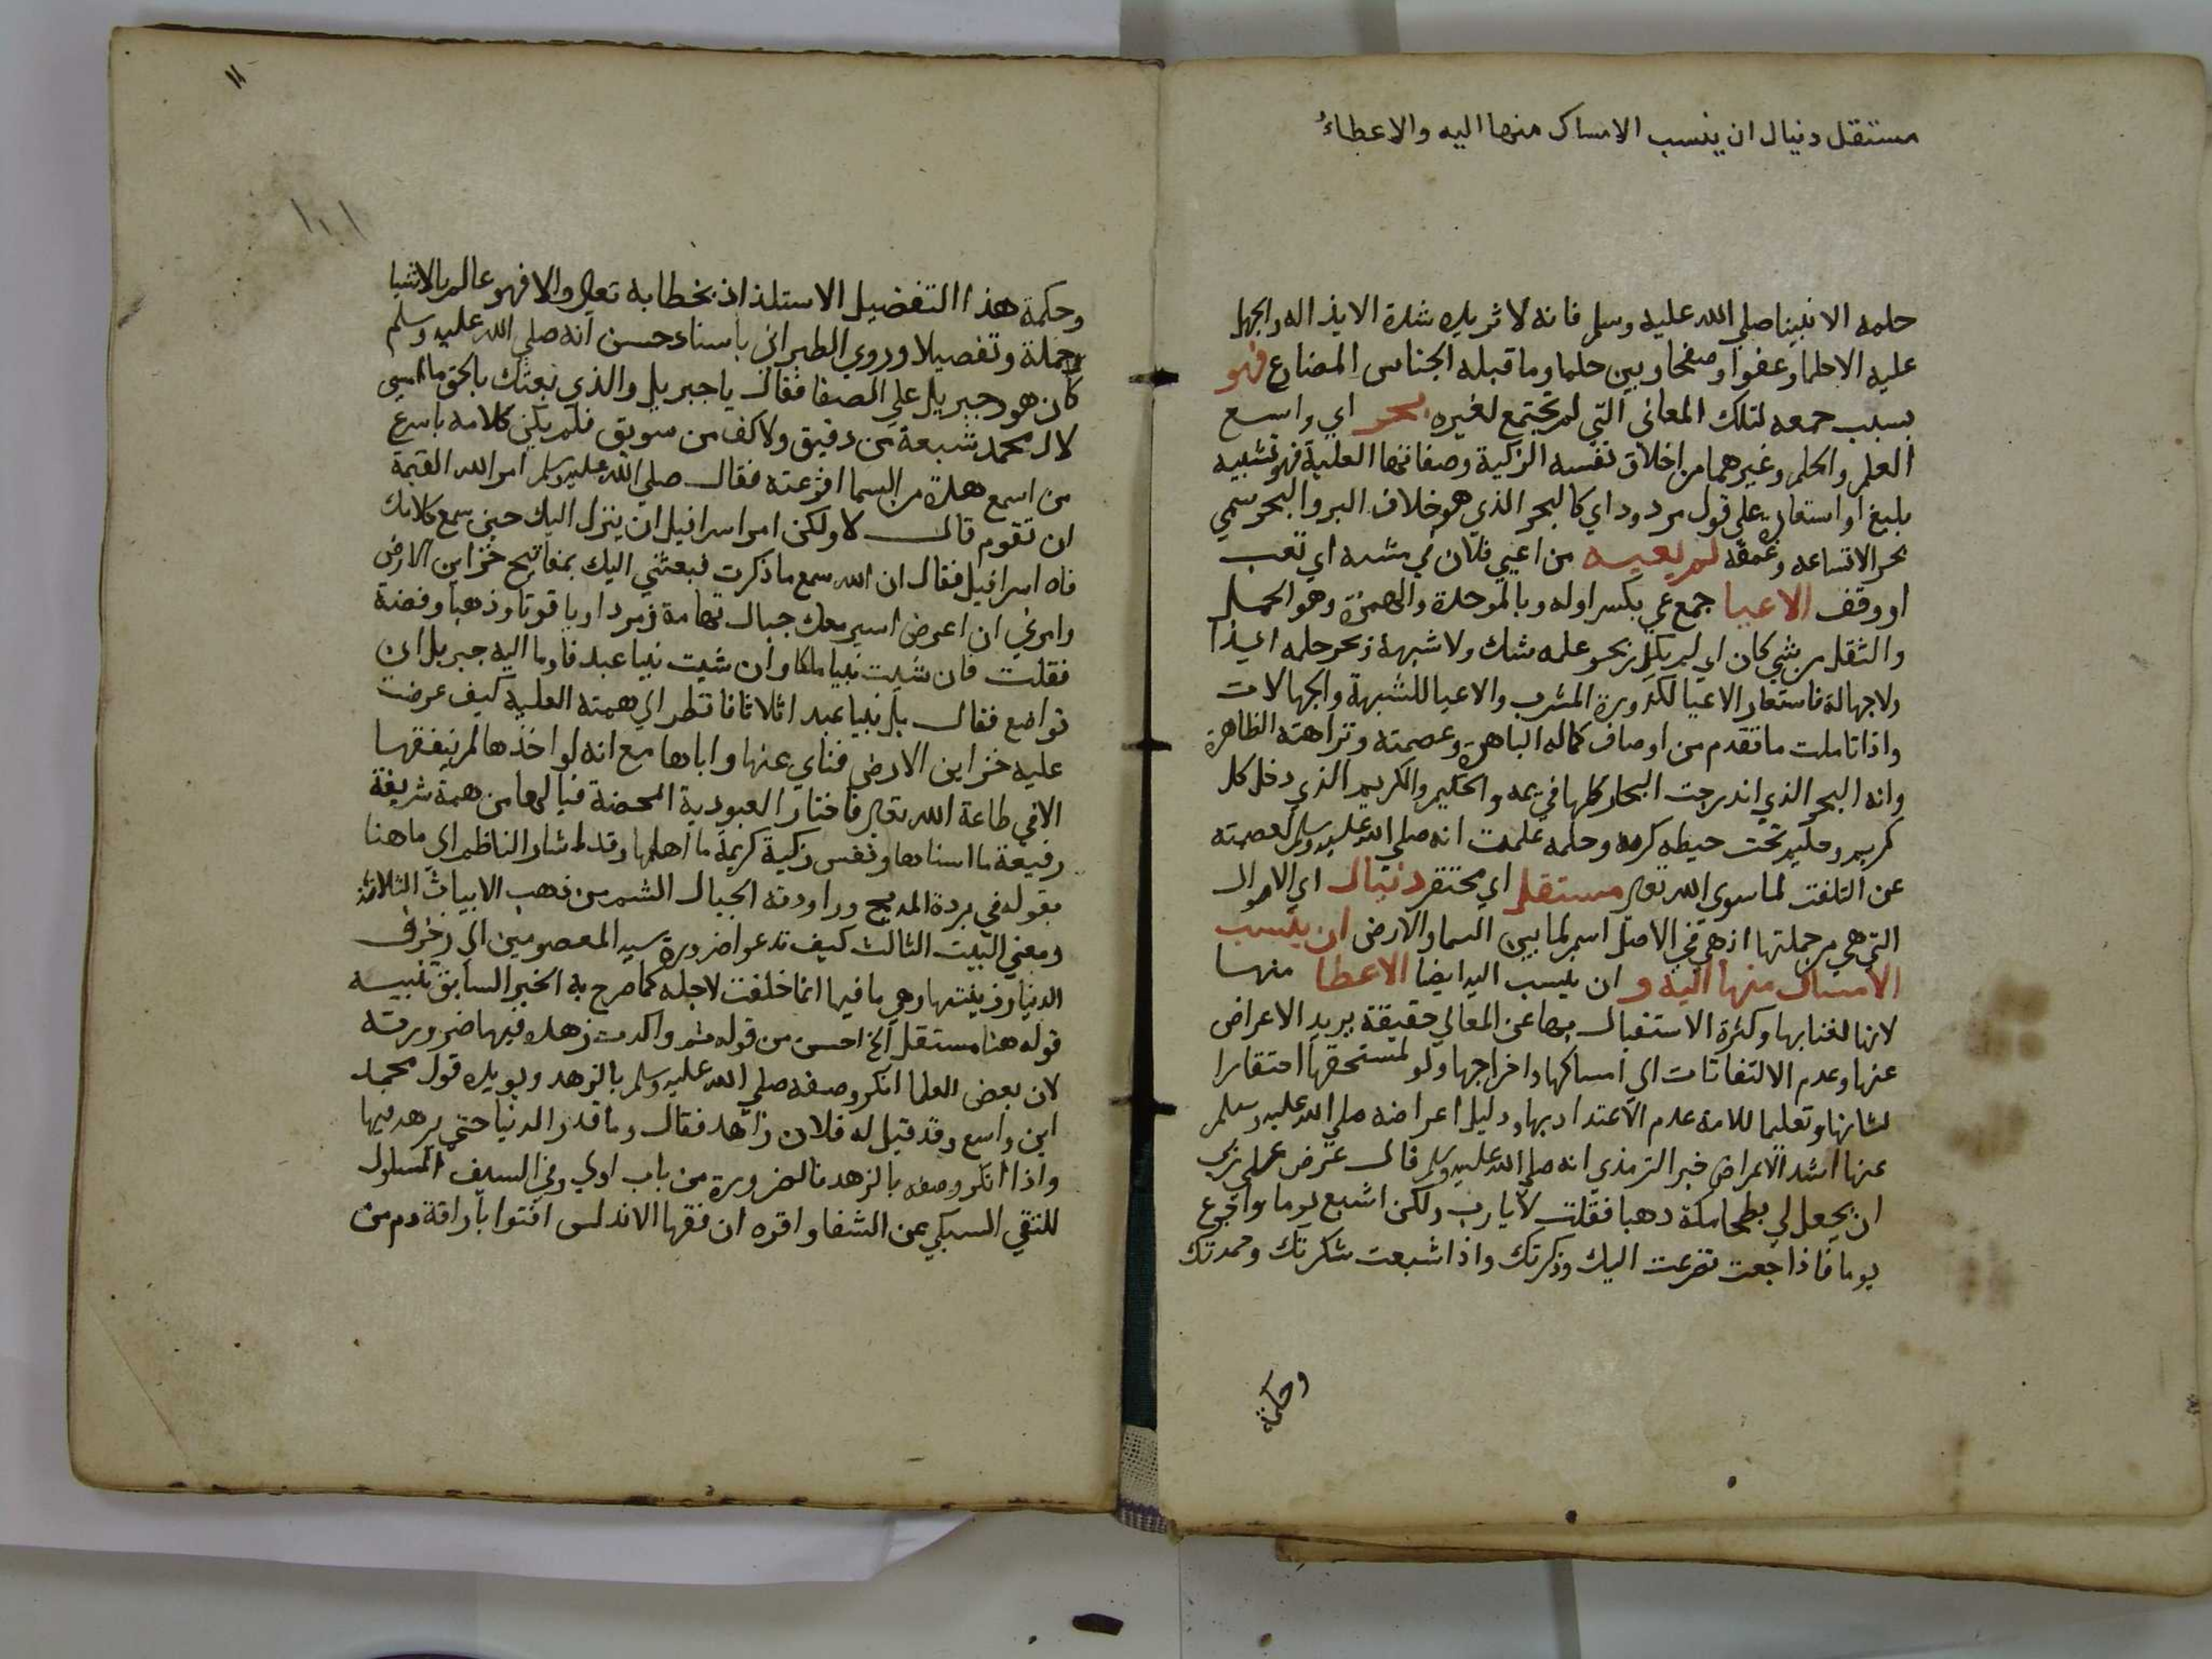 مستقل دنياك ان ينسب الامساك منها اليه والاعطاءُ
حلمه الا نبينا صلي الله عليه وسلم فانه لا تزيده شدة الايذا له والجهل
عليه الا حلما وعفوا وصفحا وبين حلما وما قبله الجناس المضارع فهو
بسبب جمعه لتلك المعاني التي لم تجتمع لغيره بحر اي واسع
العلم والحلم وغيرهما من اخلاق نفسه الزكية وصفاتها العلية فهو تشبيه
بليغ او استعارة علي قول مردود اي كالبحر الذي هو خلاف البر والبحر سمي
بحر الاتساعه وعمقه لم تعيه من اعيي فلان في مشيه اي تعب
او وقف الاعبا جمع عبي بكسر اوله وبالموحدة والهمزة وهو الحمل
والثقل من شي كان اي لم يكدر بحر علمه شك ولا شبهة وبحر حلمه ايذا
ولا جهالة فاستعار الاعيا لكدورة المشرب والاعبا للشبهة والجهالات
واذا تاملت ما تقدم من اوصاف كماله الباهرة وعصمته ونزاهته الظاهرة
وانه البحر الذي اندرجت البحار كلها في يمه والحليم والكريم الذي دخل كل
كريم وحليم تحت حيطه كرمه وحلمه علمت انه صلي الله عليه وسلم لعصمته
عن التلفت لما سوي الله تعالي مستقل اي محتقر دنياك اي الاموال
التي هي من جملتها اذ هي في الاصل اسم لما بين السما والارض ان ينسب
الامساك منها اليه و ان ينسب اليه ايضا الاعطا منها
لانها لفنايها وكثرة الاشتغال بها عن المعالي حقيقة بريد الاعراض
عنها وعدم الالتفاتات الي امساكها واخراجها ولو لمستحقها احتقارا
لشانها وتعليما للامة عدم الاعتداد بها ودليل اعراضه صلي الله عليه وسلم
عنها اشد الاعراض خبر الترمذي انه صلي الله عليه وسلم قال عرض علي ربي
ان يجعل لي بطحا مكة دهبا فقلت لا يا رب ولكن اشبع يوما واجوع
يوما فاذا جعت تضرعت اليك وذكرتك واذا شبعت شكرتك وحمدتك
وحكمة
١١
١٠١
وحكمة هذا التفضيل الاستلذاذ بخطابه تعالي والا فهو عالم بالاشيا
جملة وتفصيلا وروي الطبراني باسناد حسن انه صلي الله عليه وسلم
كان هو وجبريل علي الصفا فقال يا جبريل والذي بعثك بالحق ما امسي
لال محمد شبعة من دقيق ولا كف من سويق فلم يكن كلامه باسرع
من اسمع هدة من السما افزعته فقال صلي الله عليه وسلم امر الله القيمة
ان تقوم قال لا ولكن امر اسرافيل ان ينزل اليك حين سمع كلامك
فاه اسرافيل فقال ان الله سمع ما ذكرت فبعثني اليك بمفاتيح خزاين الارض
وامرني ان اعرض اسير معك جبال تهامة زمردا وياقوتا وذهبا وفضة
فقلت فان شيت نبيا ملكا وان شيت نبيا عبد فاوما اليه جبريل ان
تواضع فقال بل نبيا عبدا ثلاثا فانظر الي همته العلية كيف عرضت
عليه خزاين الارض فناي عنها واباها مع انه لو اخذها لم ينفقها
الا في طاعة الله تعالي فاختار العبودية المحضة فيالها من همة شريفة
رفيعة ما اسناها ونفس زكية كريمة ما اهلها وقد اشار الناظم الي ما هنا
بقوله في بردة المديح وراودته الجبال الشم من ذهب الابيات الثلاثة
ومعني البيت الثالث كيف تدعوا ضرورة سيد المعصومين الي زخرف
الدنيا وزينتها وهي بما فيها انما خلقت لاجله كما صرح به الخبر السابق تنبيه
قوله هنا مستقل الخ احسن من قوله ثم واكدت زهده فيها ضرورته
لان بعض العلما انكر وصفه صلي الله عليه وسلم بالزهد ويويده قول محمد
ابن واسع وقد قيل له فلان زاهد فقال وما قدر الدنيا حتي يزهد فيها
واذا انكر وصفه بالزهد فالضرورة من باب اولي وفي السيف المسلول
للتقي السبكي عن الشفا واقره ان فقها الاندلس افتوا باراقة دم من